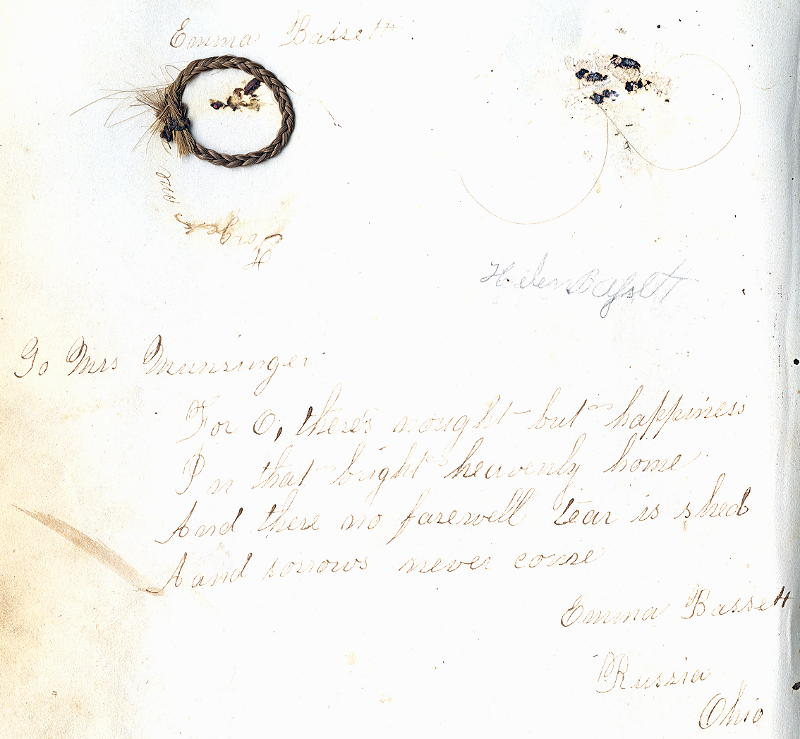 Emma Bassett.
Forget me
Helen Bassett
To Mrs Munsinger
For O, there's nought but happiness
In that bright heavenly home
And there no farewell tear is shed
Aand sorrows never come
Emma Bassett
Russia
Ohio